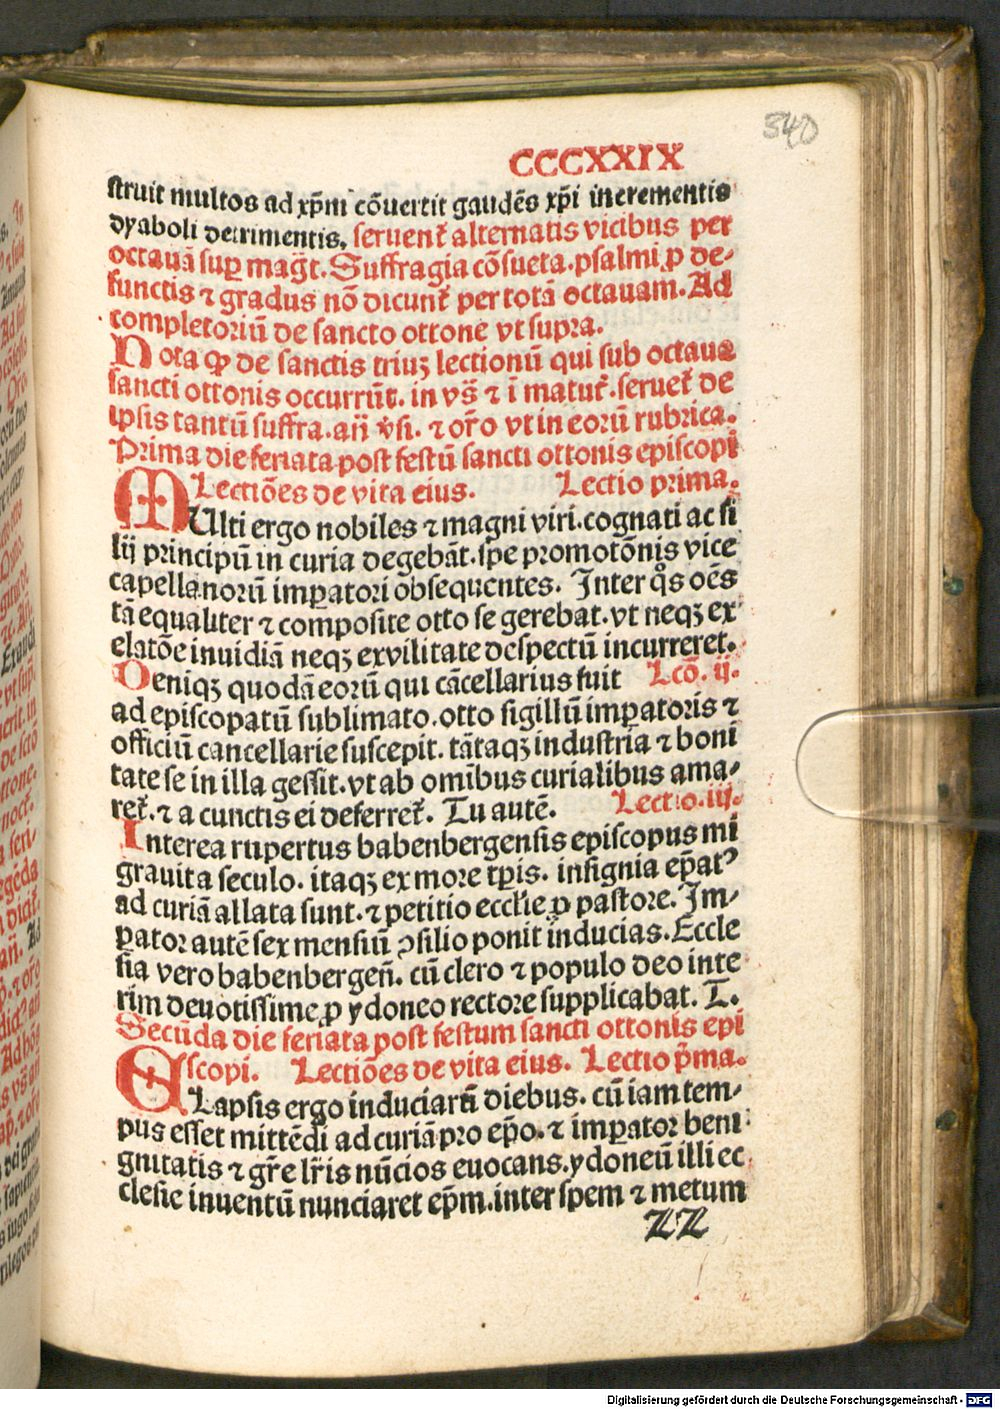 340
CCCXXIX
struit multos ad xp̄m cōuertit gaudēs xp̄i incrementis
dyaboli detrimentis. seruent᷑ alternatis vicibus per
octauā sup̲ mag̃t. Suffragia cōsueta. psalmi ꝓ de-
functis ⁊ gradus nō dicunt᷑ per totā octauam. Ad
completoriū de sancto ottone vt supra.
Nota ꝙ de sanctis triuꝫ lectionū qui sub octaua
sancti ottonis occurrūt. in vs̄ ⁊ ī matut᷑. seruet᷑ de
ipsis tantū suffra. an̄ v̓si. ⁊ or̄o vt in eorū rubrica.
Prima die feriata post festū sancti ottonis episcopi
Lectiōes de vita eius. Lectio prima.
MUlti ergo nobiles ⁊ magni viri. cognati ac fi
lij principū in curia degebāt. spe promotōnis vice
capellanorū imꝑatori obsequentes. Inter q̊s oēs
tā equaliter ⁊ composite otto se gerebat. vt neqꝫ ex
elatōe inuidiā neqꝫ ex vilitate despectū incurreret.
Deniqꝫ quodā eorū qui cācellarius fuit Lcō. ij.
ad episcopatū sublimato. otto sigillū imꝑatoris ⁊
officiū cancellarie suscepit. tātaqꝫ industria ⁊ boni
tate se in illa gessit. vt ab omībus curialibus ama-
ret᷑. ⁊ a cunctis ei deferret᷑. Tu autē. Lectio. iij.
Interea rupertus babenbergensis episcopus mi
grauit a seculo. itaqꝫ ex more tp̄is. insignia ep̄atꝰ
ad curiā allata sunt. ⁊ petitio eccl̓ie ꝓ pastore. Im-
ꝑator autē sex mensiū ꝯsilio ponit inducias. Eccle
sia vero babenbergen̄. cū clero ⁊ populo deo inte
rim deuotissime ꝓ ydoneo rectore supplicabat. T.
Secūda die feriata post festum sancti ottonis epi
scopi. Lectiōes de vita eius. Lectio p̄ma.
ELapsis ergo induciarū diebus. cū iam tem-
pus esset mittēdi ad curiā pro ep̄o. ⁊ imꝑator beni
gnitatis ⁊ gr̄e lr̄is nūcios euocans. ydoneū illi ec
clesie inuentū nunciaret ep̄m. inter spem ⁊ metum
ZZ
Digitalisierung gefördert durch die Deutsche Forschungsgemeinschaft - DFG